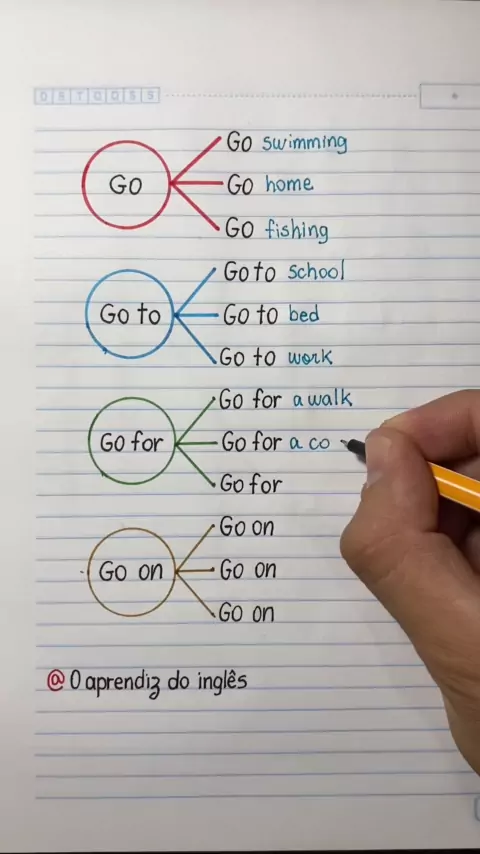 D S T Q Q S S
Go swimming
Go
Go home
Go fishing
Go to school
Go to
Go to bed
Go to work
Go for a walk
Go for
Go for a co
Go for
Go on
Go on
Go on
Go on
@ O aprendiz do inglês